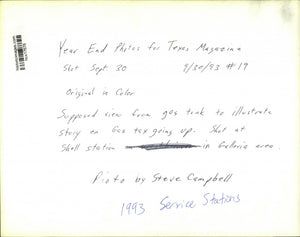 Year End Photos for Texas Magazine
Shot Sept. 30 9/30/93 #19
Original in Color
Supposed view from gas tank to illustrate
story on Gas tax going up. Shot at
Shell station in Galleria area.
Photo by Steve Campbell
1993 Service Stations